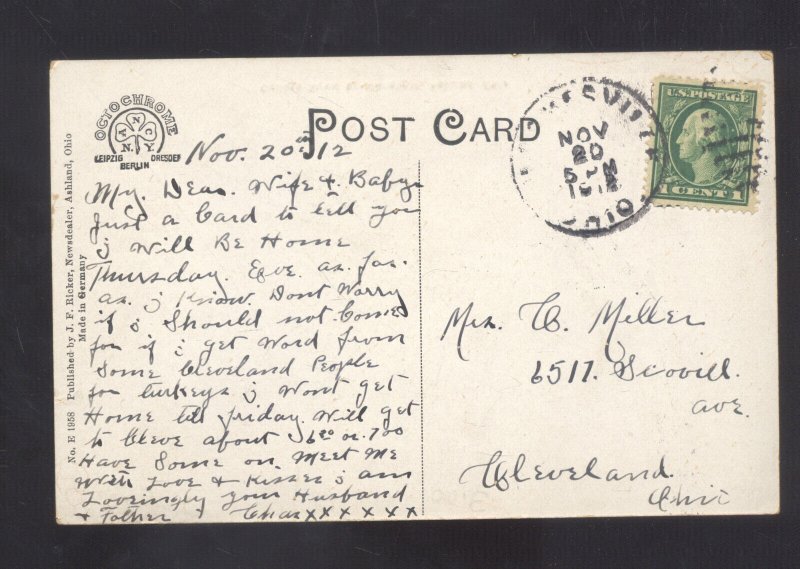 OCTOCHROME
ANCY
N.
LEIPZIG DRESDEN
BERLIN
POST CARD
VILLE
NOV
20
5 PM
1912
OHIO.
U.S. POSTAGE
1 CENT 1
No. E 1958 Published by J. F. Ricker, Newsdealer, Ashland, Ohio
Made in Germany
Nov. 20th 12
My. Dear. Wife & Baby.
Just a Card to tell you
i Will Be Home
Thursday. Eve. as far.
as. i Know. Dont Worry
if i Should not Come
for if i get Word from
Some Cleveland People
for turkeys i Wont get
Home till friday. Will get
to Cleve about 6 30 or 7 00
Have Some on Meet Me
With Love & Kisses i am
Loveingly your Husband
& Father Chas xxxxxxx
Mrs. C. Miller
6517. Scovill.
ave.
Cleveland
Ohio